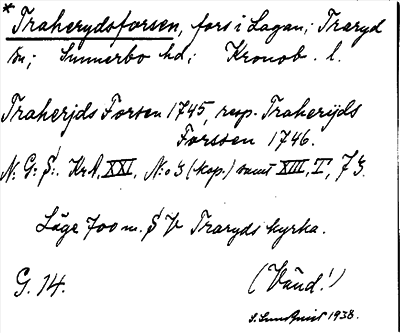 * Traherydsforsen, fors i Lagan; Traryd
sn; Sunnerbo hd; Kronob. l.
Traherjds Forsen 1745, resp. Traherijds
Forssen 1746.
N: G: S:. KrA, XXI, N:o 3 (kop.) samt XIII, T, 73.
Läge 700 m. S V Traryds kyrka.
G. 14.
(Vänd!)
S. Lundquist 1938.